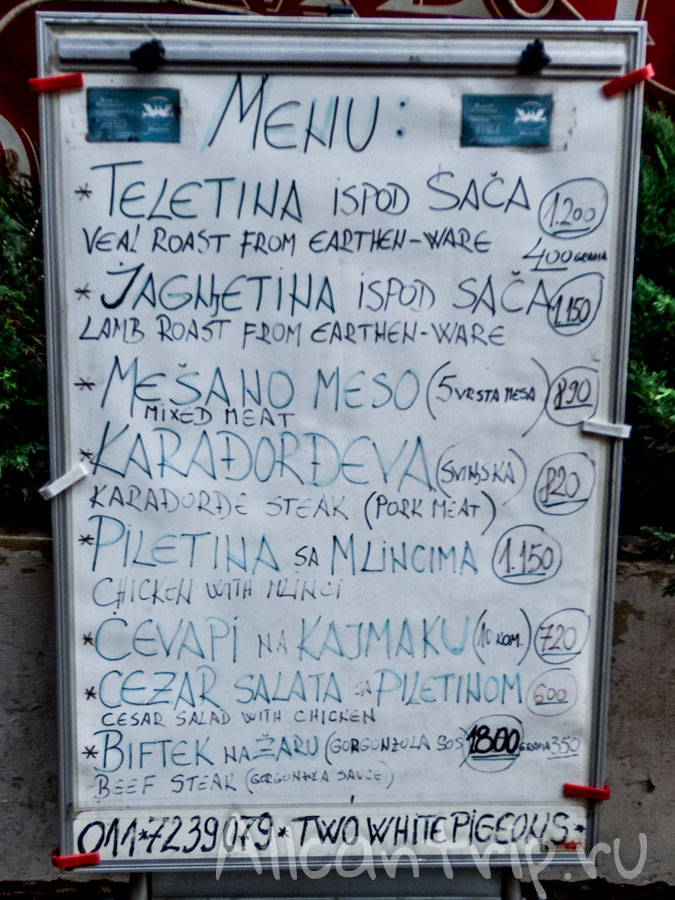 MENU:
* TELETINA ISPOD SAČA 1.200
VEAL ROAST FROM EARTHEN-WARE 400 GRAMA
* JAGNJETINA ISPOD SAČA 1.150
LAMB ROAST FROM EARTHEN-WARE
* MEŠANO MESO (5 VRSTA MESA) 890
MIXED MEAT
* KARAĐORĐEVA (SVINJSKA) 820
KARAĐORĐE STEAK (PORK MEAT)
* PILETINA SA MLINCIMA 1.150
CHICKEN WITH MLINCI
* ĆEVAPI NA KAJMAKU (10 KOM.) 720
* CEZAR SALATA SA PILETINOM 600
CESAR SALAD WITH CHICKEN
* BIFTEK NA ŽARU (GORGONZOLA SOS) 1800 GRAMA 350
BEEF STEAK (GORGONZLA SAUCE)
011*7239079* TWO WHITE PIGEONS *
Alicantrip.ru